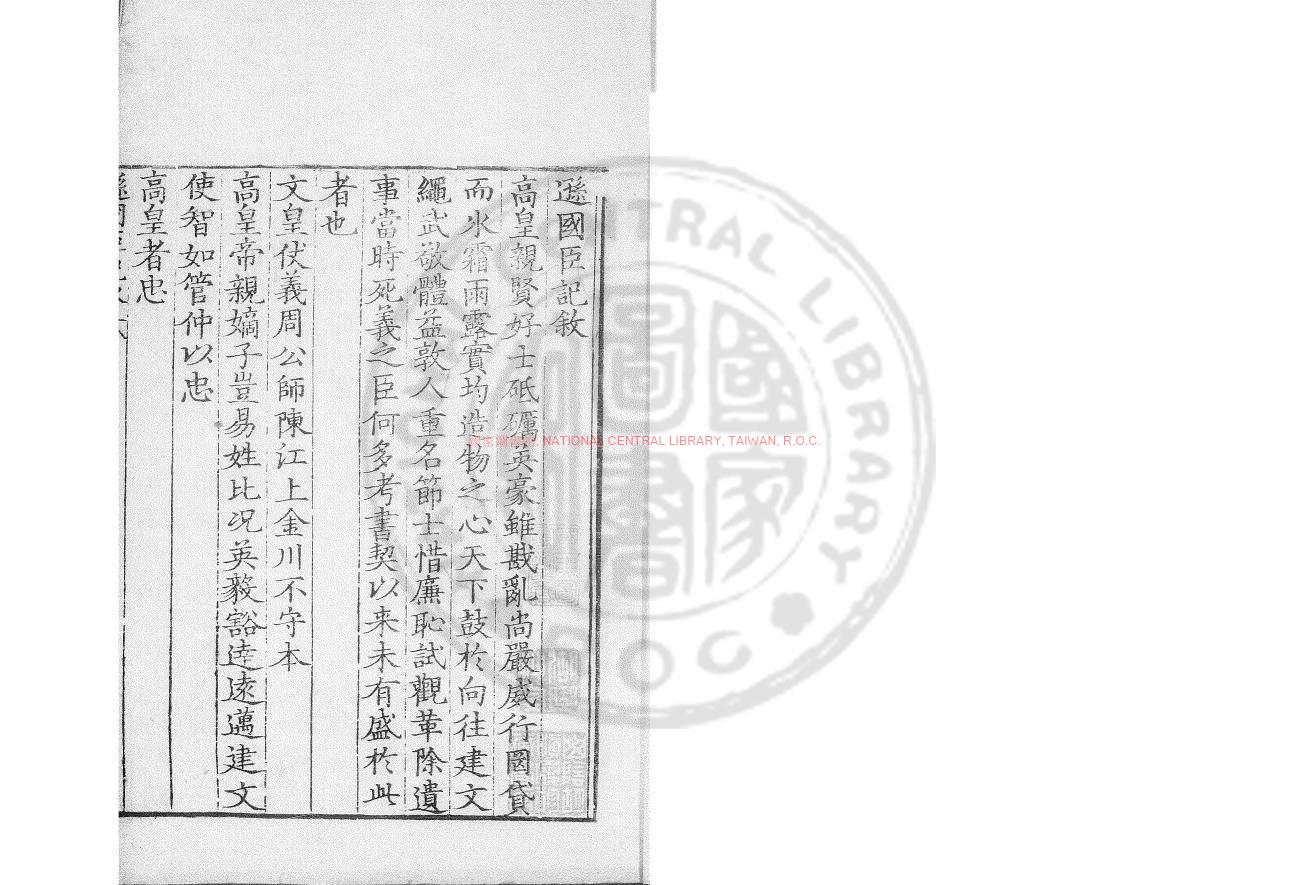 遜國臣記敘
高皇親賢好士砥礪英豪雖戡亂尚嚴威行罔貸
而氷霜雨露實均造物之心天下鼓於向往建文
繩武敬體益敦人重名節士惜廉恥試觀革除遺
事當時死義之臣何多考書契以来未有盛於此
者也
文皇仗義周公師陳江上金川不守本
高皇帝親嫡子豈易姓比况英毅豁達遠邁建文
使智如管仲以忠
高皇者忠
NATIONAL CENTRAL LIBRARY, TAIWAN, R.O.C.
國家圖書
CENTRAL LIBRARY
ROC